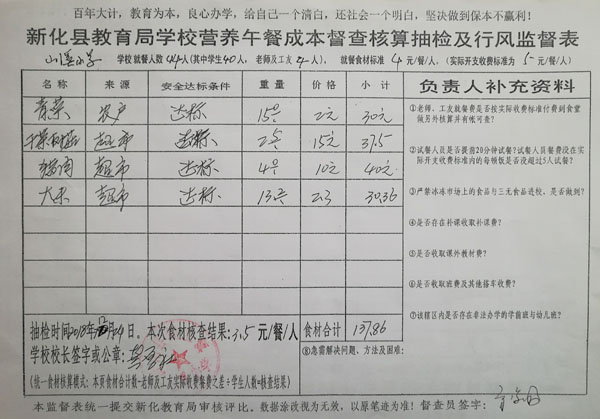 百年大计，教育为本，良心办学，给自己一个清白，还社会一个明白，坚决做到保本不赢利！
新化县教育局学校营养午餐成本督查核算抽检及行风监督表
学校就餐人数44人(其中学生40人，老师及工友4人)， 就餐食材标准4元/餐/人，(实际开支收费标准为5元/餐/人)
名称 来源 安全达标条件 重量 价格 小计 负责人补充资料
青菜 农户 达标 15 2元 30元
超市 达标 15元 37.5
超市 达标 4 10元 40元
大米 超市 达标 2.3 30.36
①老师、工友就餐费是否按实际收费标准付费到食堂
做另外核算并有帐可查?
②试餐人员是否提前20分钟试餐?试餐人员餐费没在实
际开支收费标准内的每顿饭是否没超过5人试餐?
③严禁冰冻市场上的食品与三无食品进校，是否做到?
④是否存在补课收取补课费?
⑤是否收取课外教材费?
⑥是否收取班费及其他搭车收费?
⑦该辖区内是否存在非法办学的学前班与幼儿班?
抽检时间2018年 月29日。本次食材核查结果:3.5元/餐/人 食材合计 137.86
学校校长签字或公章:
⑧急需解决问题、方法及困难:
(统一食材核算模式:本页食材合计数-老师及工友实际收费餐费之差÷学生人数=核查结果)
本监督表统一提交新化教育局审核评比。数据涂改视为无效，以原笔迹为准! 督查员签字: